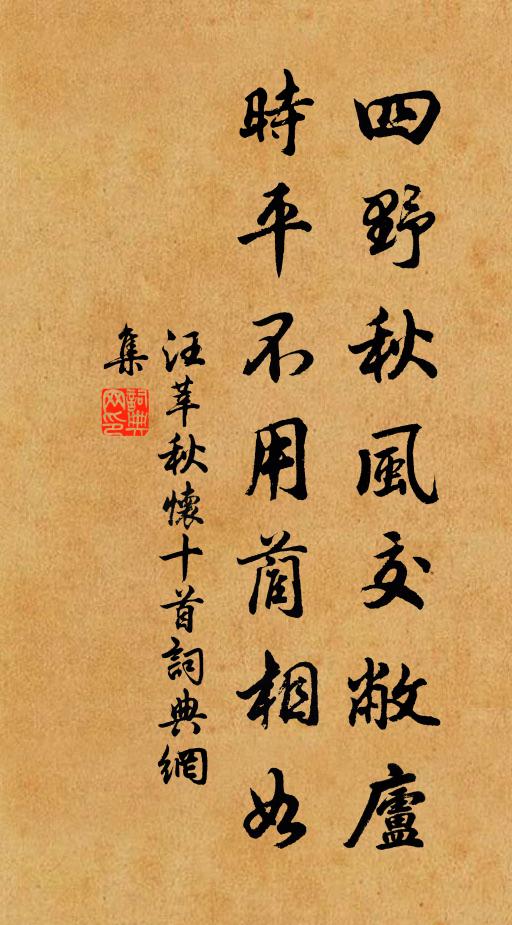 四野秋風交敝廬
時平不用藺相如
汪莘秋懷十首詞典網
集
詞典
网印